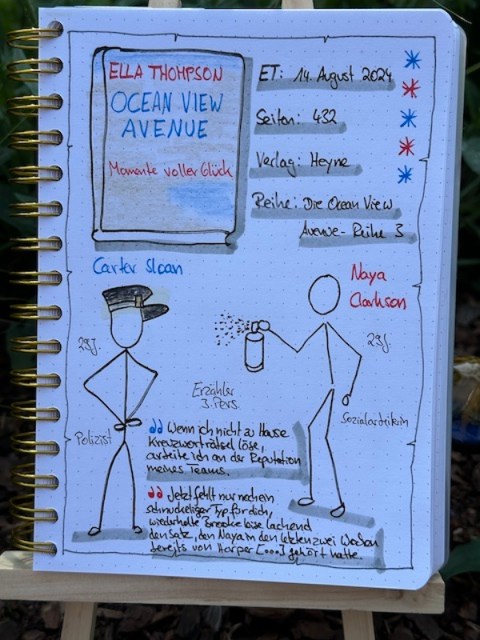 ELLA THOMPSON
OCEAN VIEW
AVENUE
Momente voller Glück
ET: 14. August 2024
Seiten: 432
Verlag: Heyne
Reihe: Die Ocean View
Avenue-Reihe 3
Carter Sloan
Naya
Clarkson
29J.
29J.
Erzähler
3. Pers.
Polizist
Sozialarbeiterin
"Wenn ich nicht zu Hause
Kreuzworträtsel löse,
arbeite ich an der Reputation
meines Teams.
"Jetzt fehlt nur noch ein
schnuckeliger Typ für dich,
wiederholte Brooke leise lachend
den Satz, den Naya in den letzten zwei Wochen
bereits von Harper [...] gehört hatte.